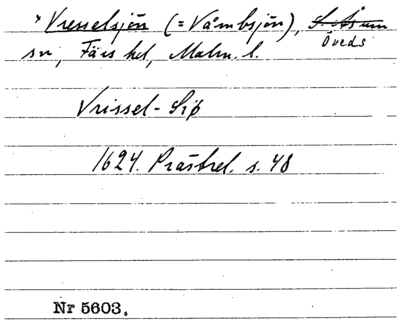 * Vresselsjön (= Våmbsjön), S. Åsum
Öveds
sn, Färs hd, Malm. l.
Vrissel-Siø
1624. Prästrel. s. 48
Nr 5603.